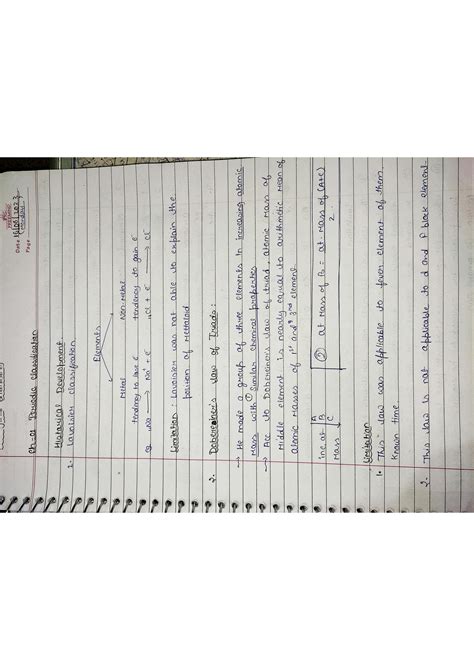 Date 16/06/2023
Page
Ch-01 Periodic classification
Historical Development
1.- Lavoisier classification
Elements
Metal Non-metal
tendency to lose e⁻ tendency to gain e⁻
eg. Na → Na⁺ + e⁻ Cl + e⁻ → Cl⁻
limitation : Lavoisier was not able to explain the
position of Metalloid
2. Dobereiner's law of Triads :
→ He made a group of three elements in increasing atomic
Mass with Similar chemical properties
→ Acc to Dobereiner's law of triad, atomic mass of
Middle element is nearly equal to arithmetic mean of
atomic masses of 1st and 3rd element
inc at A
Mass B
C
② at mass of B = at. mass of (A+C)
2
limitation
1. This law was applicable to fewer element of them
known time.
2- This law is not applicable to d and f block element.